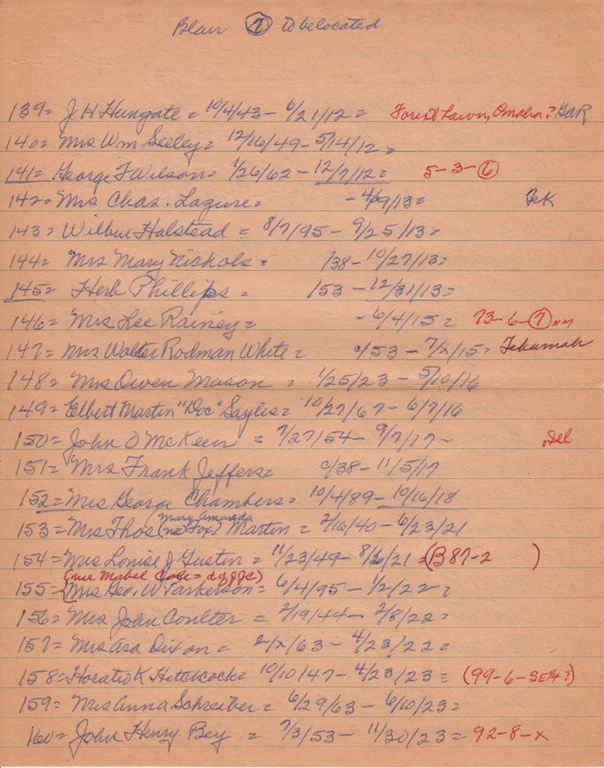 Blair ⑦ to be located
139= J H Hungate = 10/4/43 - 6/21/12 = Forest Lawn, Omaha? GAR
140= Mrs Wm Seeley = 12/16/49 - 5/14/12 =
141= George F Wilson = 1/26/62 - 12/7/12 = 5-3-⑥
142= Mrs Chas. Lazure = - 4/29/13 = Tek
143= Wilbur Halstead = 8/7/95 - 9/25/13 =
144= Mrs Mary Nichols = /38 - 10/27/13 =
145= Herb Phillips = /53 - 12/31/13 =
146= Mrs Lee Rainey = - 6/4/15 = 73-6-⑦ NM
147= Mrs Walter Rodman White = c/53 - 7/x/15 = Tekamah
148= Mrs Owen Mason = 1/25/23 - 5/10/16
149= Elbert Martin "Doc" Sayles = 10/27/67 - 6/7/16
150= John O McKeen = 7/27/54 - 9/7/17 - Del
151= Mrs Frank Jeffers = c/38 - 11/5/17
152= Mrs George Chambers = 10/4/89 - 10/16/18
153= Mrs Thos (Mary Amanda nee Fox) Martin = 2/16/40 - 6/23/21
154= Mrs Louise J Gustin = 11/23/49 - 8/6/21 = (B 87-2 )
(nee Mabel Cole = d g J J C)
155= (Mrs Geo. W Parkerson = 6/4/95 - 1/2/22 =
156= Mrs John Coulter = 2/19/44 - 2/8/22 =
157= Mrs Asa Dixon = 2/x/63 - 4/23/22 =
158= Horatio K Hitchcock = 10/10/47 - 4/23/23 = (99-6-SE¼?)
159= Mrs Anna Schreiber = 6/29/63 - 6/10/23 =
160= John Henry Bey = 7/3/53 - 11/30/23 = 92-8-x